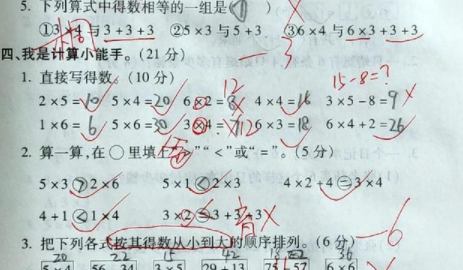 5. 下列算式中得数相等的一组是(①)
①3×4与3+3+3 ②5×3与5+3 ③6×4与6×3+3+3
四、我是计算小能手。(21分)
15-8=?
1. 直接写得数。(10分)
12
2×5=10 5×4=20 6×2=8 4×4=16 3×5-8=9
1×6=6 5×6=30 3×4=7 12 6×3=18 6×4+2=26
2. 算一算,在○里填上">""<"或"="。(5分)
5×3>2×6 5×1<2×3 4×2+4=3×4
4+1<1×4 3×2=3+3+3
-6
3. 把下列各式按其得数从小到大的顺序排列。(6分)
20 22 15 42 18 36
5×4 56-34 3×5 29+13 75-57 6×6